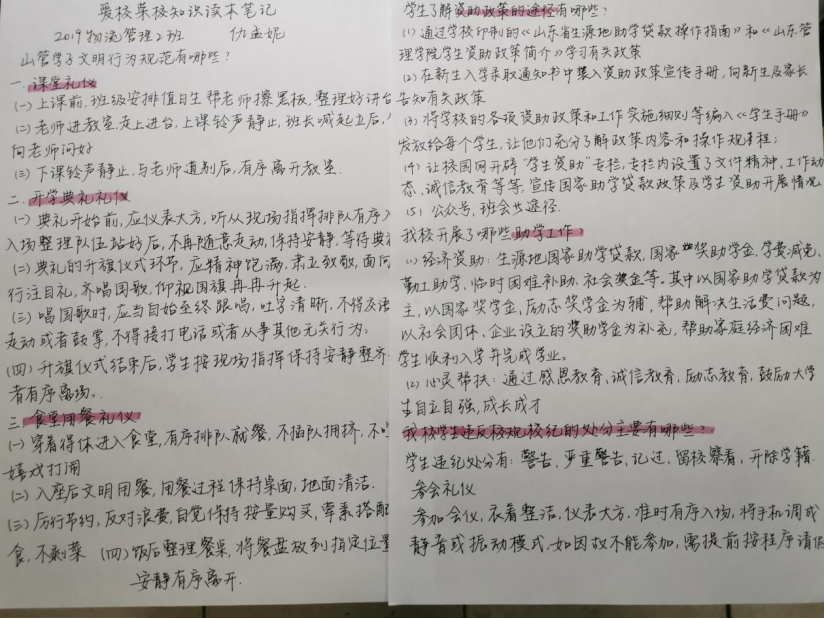 爱校荣校知识读本笔记
2019物流管理2班 仇孟妮
山管学子文明行为规范有哪些?
一.课堂礼仪
(一)上课前,班级安排值日生帮老师擦黑板,整理好讲台
(二)老师进教室,走上进台,上课铃声静止,班长喊起立后,
向老师问好
(三)下课铃声静止,与老师道别后,有序离开教室.
二.开学典礼礼仪
(一)典礼开始前,应仪表大方,听从现场指挥排队有序入
入场整理队伍站好后,不再随意走动,保持安静,等待典礼
(二)典礼的升旗仪式环节,应精神饱满,肃立致敬,面向
行注目礼,齐唱国歌,仰视国旗冉冉升起.
(三)唱国歌时,应当自始至终跟唱,吐字清晰,不得交语
走动或者鼓掌,不得接打电话或者从事其他无关行为。
(四)升旗仪式结束后,学生按现场指挥保持安静整齐
者有序离场。
三.食堂用餐礼仪
(一)穿着得体进入食堂,有序排队就餐,不插队拥挤,不
嬉戏打闹
(二)入座后文明用餐,用餐过程保持桌面,地面清洁.
(三)厉行节约,反对浪费,自觉保持按量购买,荤素搭配
食,不剩菜 (四)饭后整理餐桌,将餐盘放到指定位置
安静有序离开.
学生了解资助政策的途径有哪些?
(1)通过学校印制的《山东省生源地助学贷款操作指南》和《山东管
理学院学生资助政策简介》学习有关政策
(2)在新生入学录取通知书中装入资助政策宣传手册,向新生及家长
告知有关政策
(3)将学校的各项资助政策和工作实施细则等编入《学生手册》
发放给每个学生,让他们充分了解政策内容和操作规程;
(4)让校园网开辟"学生资助"专栏,专栏内设置了文件精神,工作动
态、诚信教育等等,宣传国家助学贷款政策及学生资助开展情况
(5)公众号,班会等途径.
我校开展了哪些助学工作?
(1)经济资助:生源地国家助学贷款,国家奖助学金,学费减免、
勤工助学、临时困难补助、社会奖金等。其中以国家助学贷款为
主,以国家奖学金,励志奖学金为辅,帮助解决生活费问题,
以社会团体、企业设立的奖助学金为补充,帮助家庭经济困难
学生顺利入学并完成学业。
(2)心灵帮扶:通过感恩教育、诚信教育,励志教育,鼓励大学
生自立自强,成长成才
我校学生违反校规校纪的处分主要有哪些?
学生违纪处分有:警告,严重警告,记过,留校察看,开除学籍.
参会礼仪
参加会议,衣着整洁,仪表大方.准时有序入场,将手机调成
静音或振动模式.如因故不能参加,需提前按程序请假